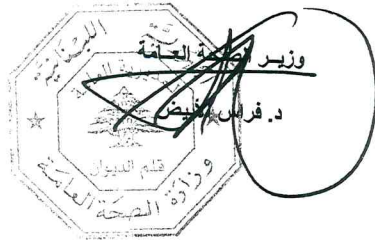 وزير الصحة العامة
د. فراس الأبيض
اللبنانية
قلم الديوان
وزارة الصحة العامة